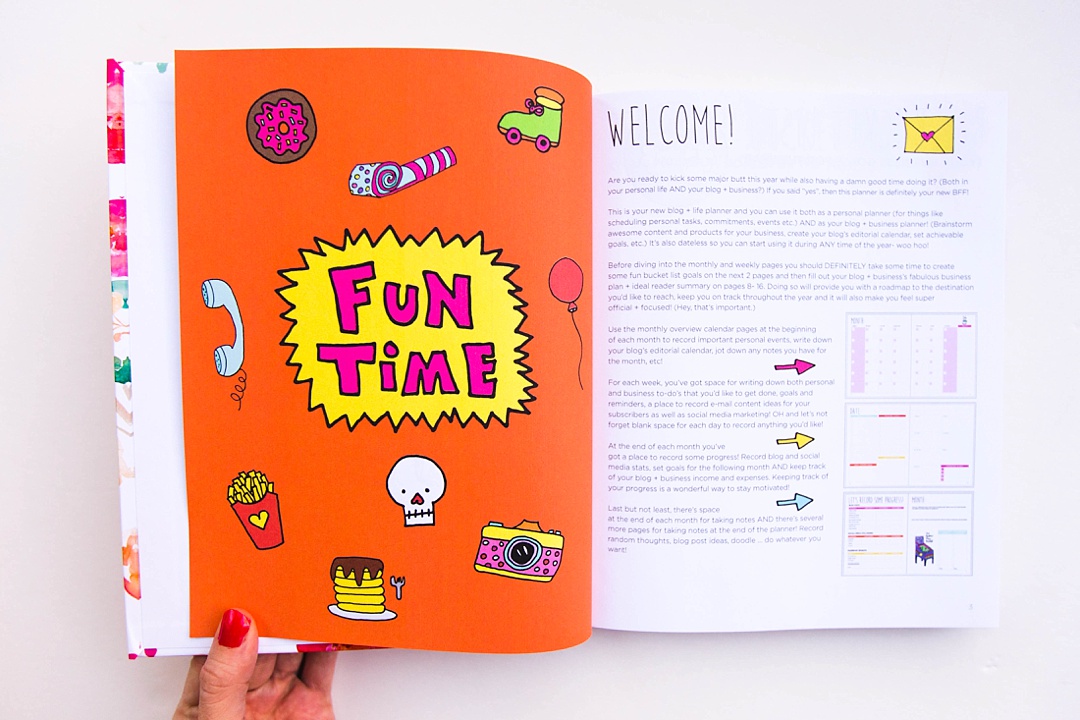 FUN
TiME
WELCOME!
Are you ready to kick some major butt this year while also having a damn good time doing it? (Both in
your personal life AND your blog + business?) If you said "yes", then this planner is definitely your new BFF!
This is your new blog + life planner and you can use it both as a personal planner (for things like
scheduling personal tasks, commitments, events etc.) AND as your blog + business planner! (Brainstorm
awesome content and products for your business, create your blog's editorial calendar, set achievable
goals, etc.) It's also dateless so you can start using it during ANY time of the year- woo hoo!
Before diving into the monthly and weekly pages you should DEFINITELY take some time to create
some fun bucket list goals on the next 2 pages and then fill out your blog + business's fabulous business
plan + ideal reader summary on pages 8- 16. Doing so will provide you with a roadmap to the destination
you'd like to reach, keep you on track throughout the year and it will also make you feel super
official + focused! (Hey, that's important.)
Use the monthly overview calendar pages at the beginning
of each month to record important personal events, write down
your blog's editorial calendar, jot down any notes you have for
the month, etc!
For each week, you've got space for writing down both personal
and business to-do's that you'd like to get done, goals and
reminders, a place to record e-mail content ideas for your
subscribers as well as social media marketing! OH and let's not
forget blank space for each day to record anything you'd like!
At the end of each month you've
got a place to record some progress! Record blog and social
media stats, set goals for the following month AND keep track
of your blog + business income and expenses. Keeping track of
your progress is a wonderful way to stay motivated!
Last but not least, there's space
at the end of each month for taking notes AND there's several
more pages for taking notes at the end of the planner! Record
random thoughts, blog post ideas, doodle ... do whatever you
want!
MONTH
DATE
LET'S RECORD SOME PROGRESS!
MONTH
3